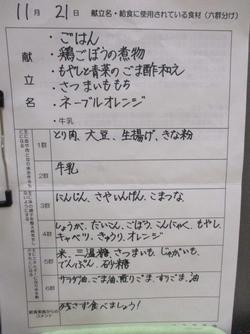 11月 21日 献立名・給食に使用されている食材(六群分け)
献立名
・ごはん
・鶏ごぼうの煮物
・もやしと青菜のごま酢和え
・さつまいももち
・ネーブルオレンジ
・牛乳
1群 とり肉、大豆、生揚げ、きな粉
2群 牛乳
3群 にんじん、さやいんげん、こまつな、
4群 しょうが、だいこん、ごぼう、こんにゃく、もやし、
キャベツ、きゅうり、オレンジ
5群 米、三温糖、さつまいも、じゃがいも、
でんぷん、砂糖
6群 サラダ油、ごま油、煎りごま、すりごま、油
給食実施からの
コメント
残さず食べましょう!